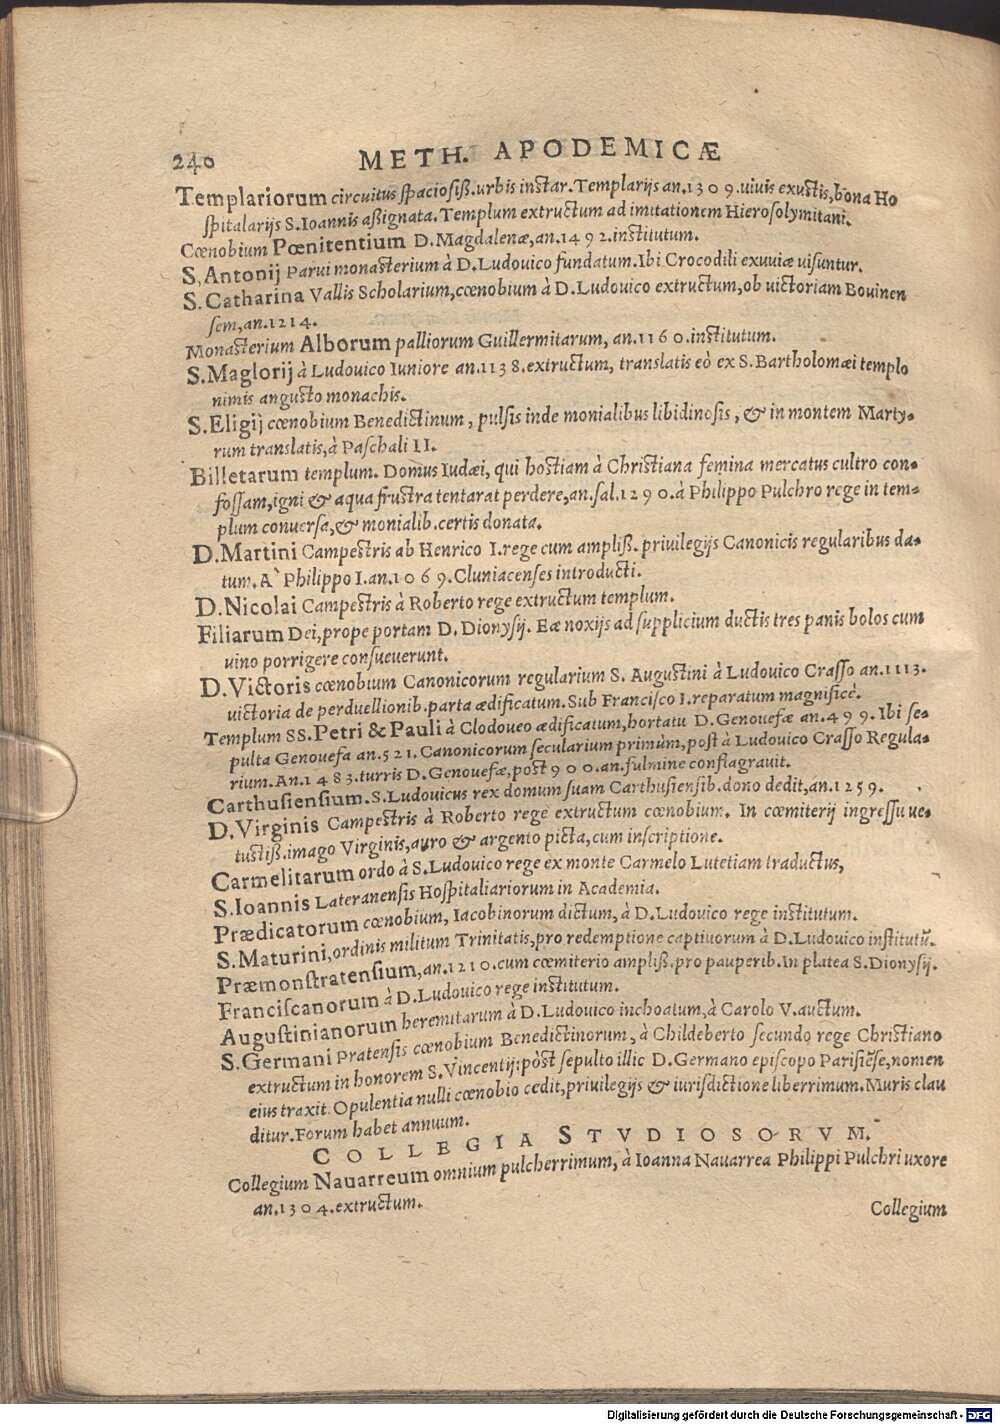 240 METH. APODEMICÆ
Templariorum circuitus spaciosiß. urbis instar. Templarijs an. 1309. uiuis exustis, bona Ho
spitalarijs S. Ioannis aßignata. Templum extructum ad imitationem Hierosolymitani.
Cœnobium Pœnitentium D. Magdalenæ, an. 1492. institutum.
S. Antonij Parui monasterium à D. Ludouico fundatum. Ibi Crocodili exuuiæ uisuntur.
S. Catharina Vallis Scholarium, cœnobium à D. Ludouico extructum, ob uictoriam Bouinen
sem, an. 1214.
Monasterium Alborum palliorum Guillermitarum, an. 1160. institutum.
S. Maglorij à Ludouico Iuniore an. 1138. extructum, translatis eò ex S. Bartholomæi templo
nimis angusto monachis.
S. Eligij cœnobium Benedictinum, pulsis inde monialibus libidinosis, & in montem Marty-
rum translatis, à Paschali II.
Billetarum templum. Domus Iudæi, qui hostiam à Christiana femina mercatus cultro con-
fossam, igni & aqua frustra tentarat perdere, an. sal. 1290. à Philippo Pulchro rege in tem-
plum conuersa, & monialib. certis donata.
D. Martini Campestris ab Henrico I. rege cum ampliß. priuilegijs Canonicis regularibus da-
tum. A` Philippo I. an. 1069. Cluniacenses introducti.
D. Nicolai Campestris à Roberto rege extructum templum.
Filiarum Dei, prope portam D. Dionysij. Eæ noxijs ad supplicium ductis tres panis bolos cum
uino porrigere consueuerunt.
D. Victoris cœnobium Canonicorum regularium S. Augustini à Ludouico Crasso an. 1113.
uictoria de perduellionib. parta ædificatum. Sub Francisco I. reparatum magnificè.
Templum SS. Petri & Pauli à Clodoueo ædificatum, hortatu D. Genouefæ an. 499. Ibi se-
pulta Genouefa an. 521. Canonicorum secularium primùm, pòst à Ludouico Crasso Regula-
rium. An. 1483. turris D. Genouefæ, post 900. an. fulmine conflagrauit.
Carthusiensium. S. Ludouicus rex domum suam Carthusiensib. dono dedit, an. 1259.
D. Virginis Campestris à Roberto rege extructum cœnobium. In cœmiterij ingressu ue-
tustiß. imago Virginis, auro & argento picta, cum inscriptione.
Carmelitarum ordo à S. Ludouico rege ex monte Carmelo Lutetiam traductus,
S. Ioannis Lateranensis Hospitaliariorum in Academia.
Prædicatorum cœnobium, Iacobinorum dictum, à D. Ludouico rege institutum.
S. Maturini, ordinis militum Trinitatis, pro redemptione captiuorum à D. Ludouico institutũ.
Præmonstratensium, an. 1210. cum cœmiterio ampliß. pro pauperib. In platea S. Dionysij.
Franciscanorum à D. Ludouico rege institutum.
Augustinianorum heremitarum à D. Ludouico inchoatum, à Carolo V. auctum.
S. Germani Pratensis cœnobium Benedictinorum, à Childeberto secundo rege Christiano
extructum in honorem S. Vincentij: pòst sepulto illic D. Germano episcopo Parisiẽse, nomen
eius traxit. Opulentia nulli cœnobio cedit, priuilegijs & iurisdictione liberrimum. Muris clau
ditur. Forum habet annuum.
COLLEGIA STVDIOSORVM.
Collegium Nauarreum omnium pulcherrimum, à Ioanna Nauarrea Philippi Pulchri uxore
an. 1304. extructum.
Collegium
Digitalisierung gefördert durch die Deutsche Forschungsgemeinschaft - DFG